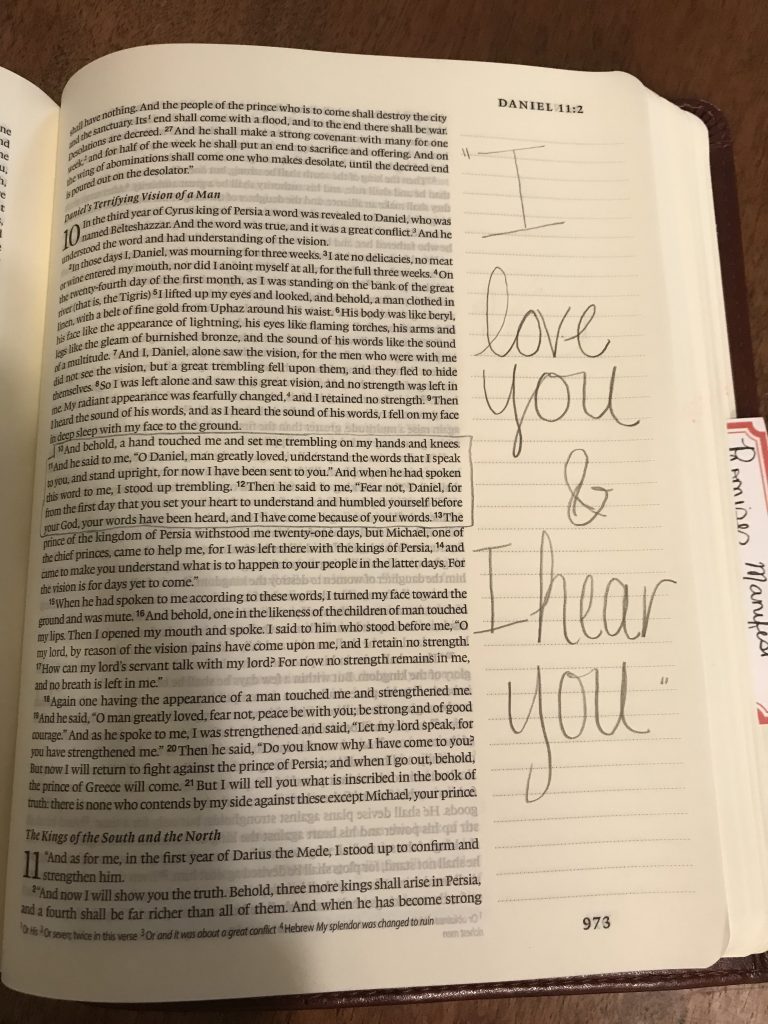 DANIEL 11:2
shall have nothing. And the people of the prince who is to come shall destroy the city
and the sanctuary. Its¹ end shall come with a flood, and to the end there shall be war.
Desolations are decreed. ²⁷And he shall make a strong covenant with many for one
week,² and for half of the week he shall put an end to sacrifice and offering. And on
the wing of abominations shall come one who makes desolate, until the decreed end
is poured out on the desolator.”
Daniel's Terrifying Vision of a Man
10 In the third year of Cyrus king of Persia a word was revealed to Daniel, who was
named Belteshazzar. And the word was true, and it was a great conflict.³ And he
understood the word and had understanding of the vision.
²In those days I, Daniel, was mourning for three weeks. ³I ate no delicacies, no meat
or wine entered my mouth, nor did I anoint myself at all, for the full three weeks. ⁴On
the twenty-fourth day of the first month, as I was standing on the bank of the great
river (that is, the Tigris) ⁵I lifted up my eyes and looked, and behold, a man clothed in
linen, with a belt of fine gold from Uphaz around his waist. ⁶His body was like beryl,
his face like the appearance of lightning, his eyes like flaming torches, his arms and
legs like the gleam of burnished bronze, and the sound of his words like the sound
of a multitude. ⁷And I, Daniel, alone saw the vision, for the men who were with me
did not see the vision, but a great trembling fell upon them, and they fled to hide
themselves. ⁸So I was left alone and saw this great vision, and no strength was left in
me. My radiant appearance was fearfully changed,⁴ and I retained no strength. ⁹Then
I heard the sound of his words, and as I heard the sound of his words, I fell on my face
in deep sleep with my face to the ground.
¹⁰And behold, a hand touched me and set me trembling on my hands and knees.
¹¹And he said to me, “O Daniel, man greatly loved, understand the words that I speak
to you, and stand upright, for now I have been sent to you.” And when he had spoken
this word to me, I stood up trembling. ¹²Then he said to me, “Fear not, Daniel, for
from the first day that you set your heart to understand and humbled yourself before
your God, your words have been heard, and I have come because of your words. ¹³The
prince of the kingdom of Persia withstood me twenty-one days, but Michael, one of
the chief princes, came to help me, for I was left there with the kings of Persia, ¹⁴and
came to make you understand what is to happen to your people in the latter days. For
the vision is for days yet to come.”
¹⁵When he had spoken to me according to these words, I turned my face toward the
ground and was mute. ¹⁶And behold, one in the likeness of the children of man touched
my lips. Then I opened my mouth and spoke. I said to him who stood before me, “O
my lord, by reason of the vision pains have come upon me, and I retain no strength.
¹⁷How can my lord's servant talk with my lord? For now no strength remains in me,
and no breath is left in me.”
¹⁸Again one having the appearance of a man touched me and strengthened me.
¹⁹And he said, “O man greatly loved, fear not, peace be with you; be strong and of good
courage.” And as he spoke to me, I was strengthened and said, “Let my lord speak, for
you have strengthened me.” ²⁰Then he said, “Do you know why I have come to you?
But now I will return to fight against the prince of Persia; and when I go out, behold,
the prince of Greece will come. ²¹But I will tell you what is inscribed in the book of
truth: there is none who contends by my side against these except Michael, your prince.
The Kings of the South and the North
11 “And as for me, in the first year of Darius the Mede, I stood up to confirm and
strengthen him.
²“And now I will show you the truth. Behold, three more kings shall arise in Persia,
and a fourth shall be far richer than all of them. And when he has become strong
¹Or His ²Or seven; twice in this verse ³Or and it was about a great conflict ⁴Hebrew My splendor was changed to ruin
973
“I
love
you
&
I hear
you”
Promises Manifest